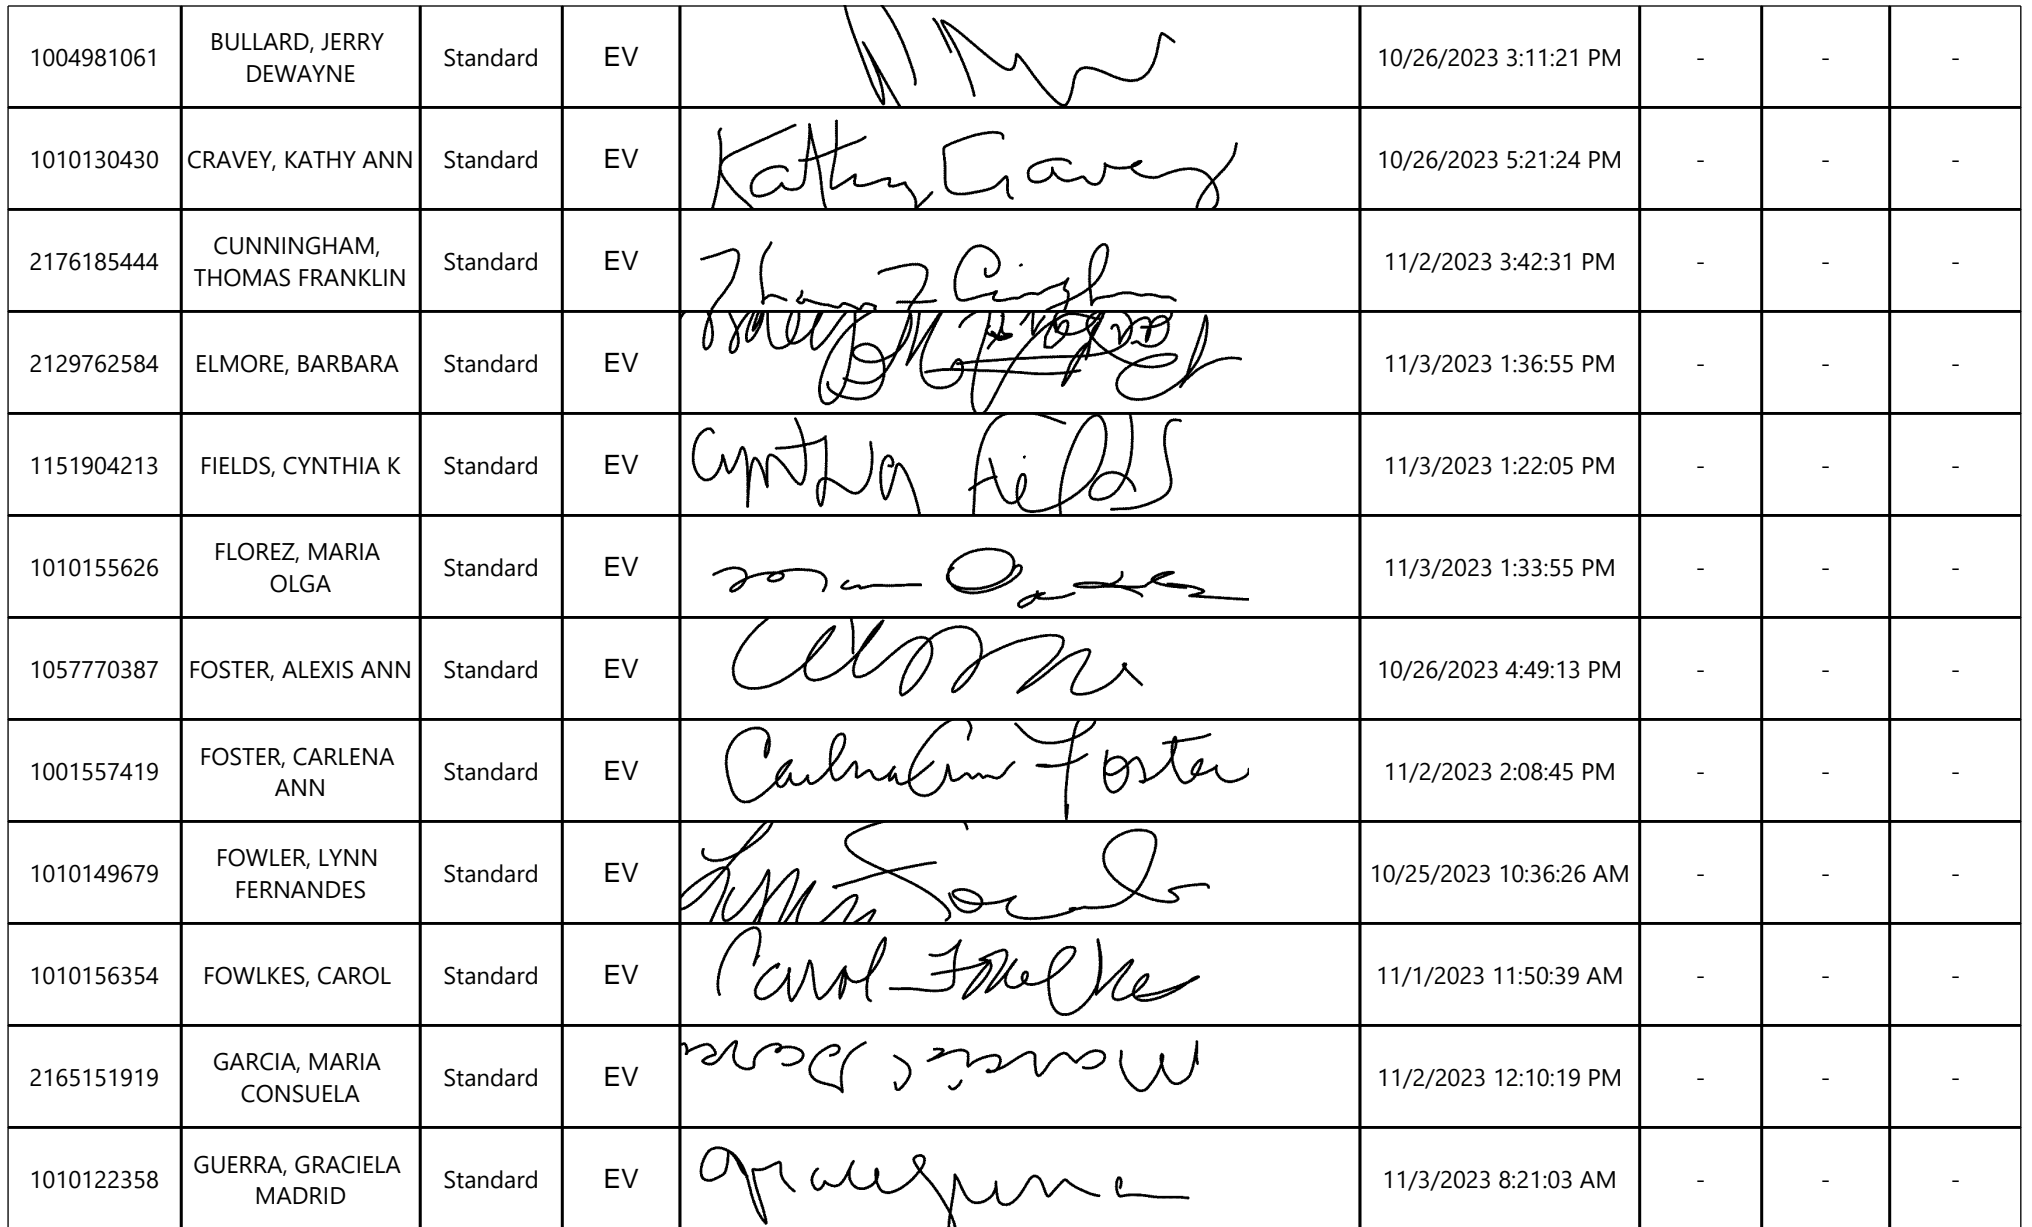 1004981061 BULLARD, JERRY DEWAYNE Standard EV 10/26/2023 3:11:21 PM - - -
1010130430 CRAVEY, KATHY ANN Standard EV Kathy Cravey 10/26/2023 5:21:24 PM - - -
2176185444 CUNNINGHAM, THOMAS FRANKLIN Standard EV 11/2/2023 3:42:31 PM - - -
2129762584 ELMORE, BARBARA Standard EV 11/3/2023 1:36:55 PM - - -
1151904213 FIELDS, CYNTHIA K Standard EV Cynthia Fields 11/3/2023 1:22:05 PM - - -
1010155626 FLOREZ, MARIA OLGA Standard EV 11/3/2023 1:33:55 PM - - -
1057770387 FOSTER, ALEXIS ANN Standard EV 10/26/2023 4:49:13 PM - - -
1001557419 FOSTER, CARLENA ANN Standard EV Carlena Ann Foster 11/2/2023 2:08:45 PM - - -
1010149679 FOWLER, LYNN FERNANDES Standard EV Lynn 10/25/2023 10:36:26 AM - - -
1010156354 FOWLKES, CAROL Standard EV Carol Fowlkes 11/1/2023 11:50:39 AM - - -
2165151919 GARCIA, MARIA CONSUELA Standard EV 11/2/2023 12:10:19 PM - - -
1010122358 GUERRA, GRACIELA MADRID Standard EV 11/3/2023 8:21:03 AM - - -